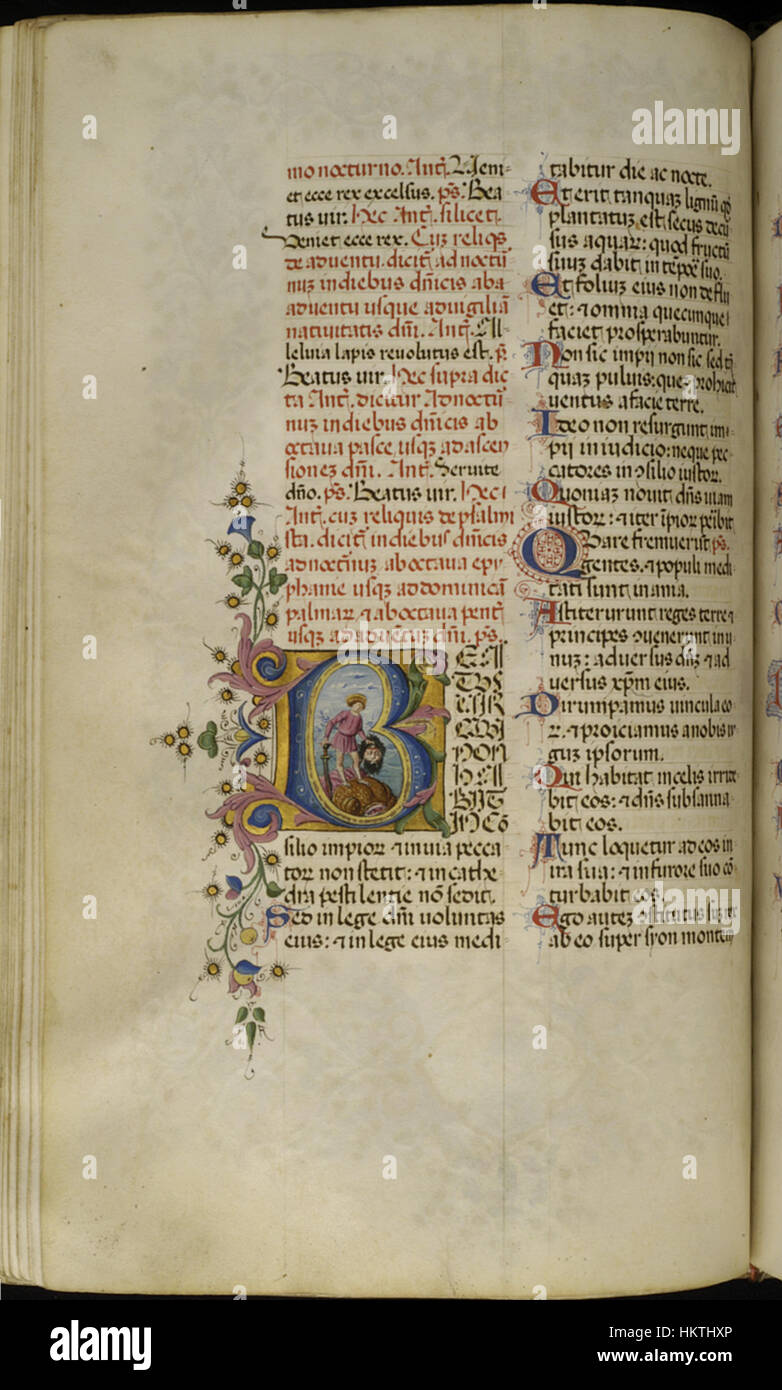 mo nocturno. Añt̃. Veni
et ecce rex excelsus. ps̃. Bea
tus uir. Hec Añt̃. silicet.
Veniet ecce rex. Cuz reliqs̃
de aduentu. dicit̃ ad noctũ
nuz in diebus dñicis aba
aduentu usque ad uigiliã
natiuitatis dñi. Añt̃. Al
leluia lapis reuolutus est. p̃.
Beatus uir. Hec supra dic
ta Añt̃. dicitur Ad noctũ
nuz in diebus dñicis ab
octaua pasce usqz ad ascen
sionez dñi. Añt̃. Seruite
dño. ps̃. Beatus uir. Hec
Añt̃. cuz reliquis de psalmi
sta. dicit̃ in diebus dñicis
ad noct̃nuz ab octaua epy
phanie usqz ad dominicã
palmaꝝ ⁊ ab octaua pent̃
usqz ad aduentuz dñi. ps̃.
BEA
TVS
VIR
QVI
NON
HA
BIIT
IN CÕ
silio impioꝝ ⁊ in uia pecca
toꝝ non stetit: ⁊ in cathe
dra pestilentie nõ sedit.
Sed in lege dñi uoluntas
eius: ⁊ in lege eius medi
tabitur die ac nocte.
Et erit tanquaz lignũ qđ
plantatuz est secus decũ
sus aquaꝝ: quod fructũ
suuz dabit in tẽpoꝝ suo.
Et foliuz eius non deflu
et: ⁊ omnia quecunque
faciet prosperabuntur.
Non sic impii non sic sed tã
quaz puluis: quez prohicit
uentus a facie terre.
Ideo non resurgunt im
pii in iudicio: neque pec
catores in ꝯsilio iustoꝝ.
Quoniaz nouit dñs uiam
iustoꝝ: ⁊ iter ĩpioꝝ peĩbit
Quare fremuerũt ps̃.
gentes. ⁊ populi medi
tati sunt inania.
Astiterurunt reges terre ⁊
principes ꝯuenerunt in u
nuz: aduersus dñz ⁊ ad
uersus xp̃m eius.
Dirumpamus uincula eo
ꝝ. ⁊ proiciamus a nobis iu
guz ipsorum.
Qui habitat in celis irride
bit eos: ⁊ dñs subsanna
bit eos.
Tunc loquetur ad eos in
ira sua: ⁊ in furore suo cõ
turbabit eos.
Ego autez ꝯstitutus suz rex
ab eo super syon montem
alamy
Image ID: HKTHXP
www.alamy.com